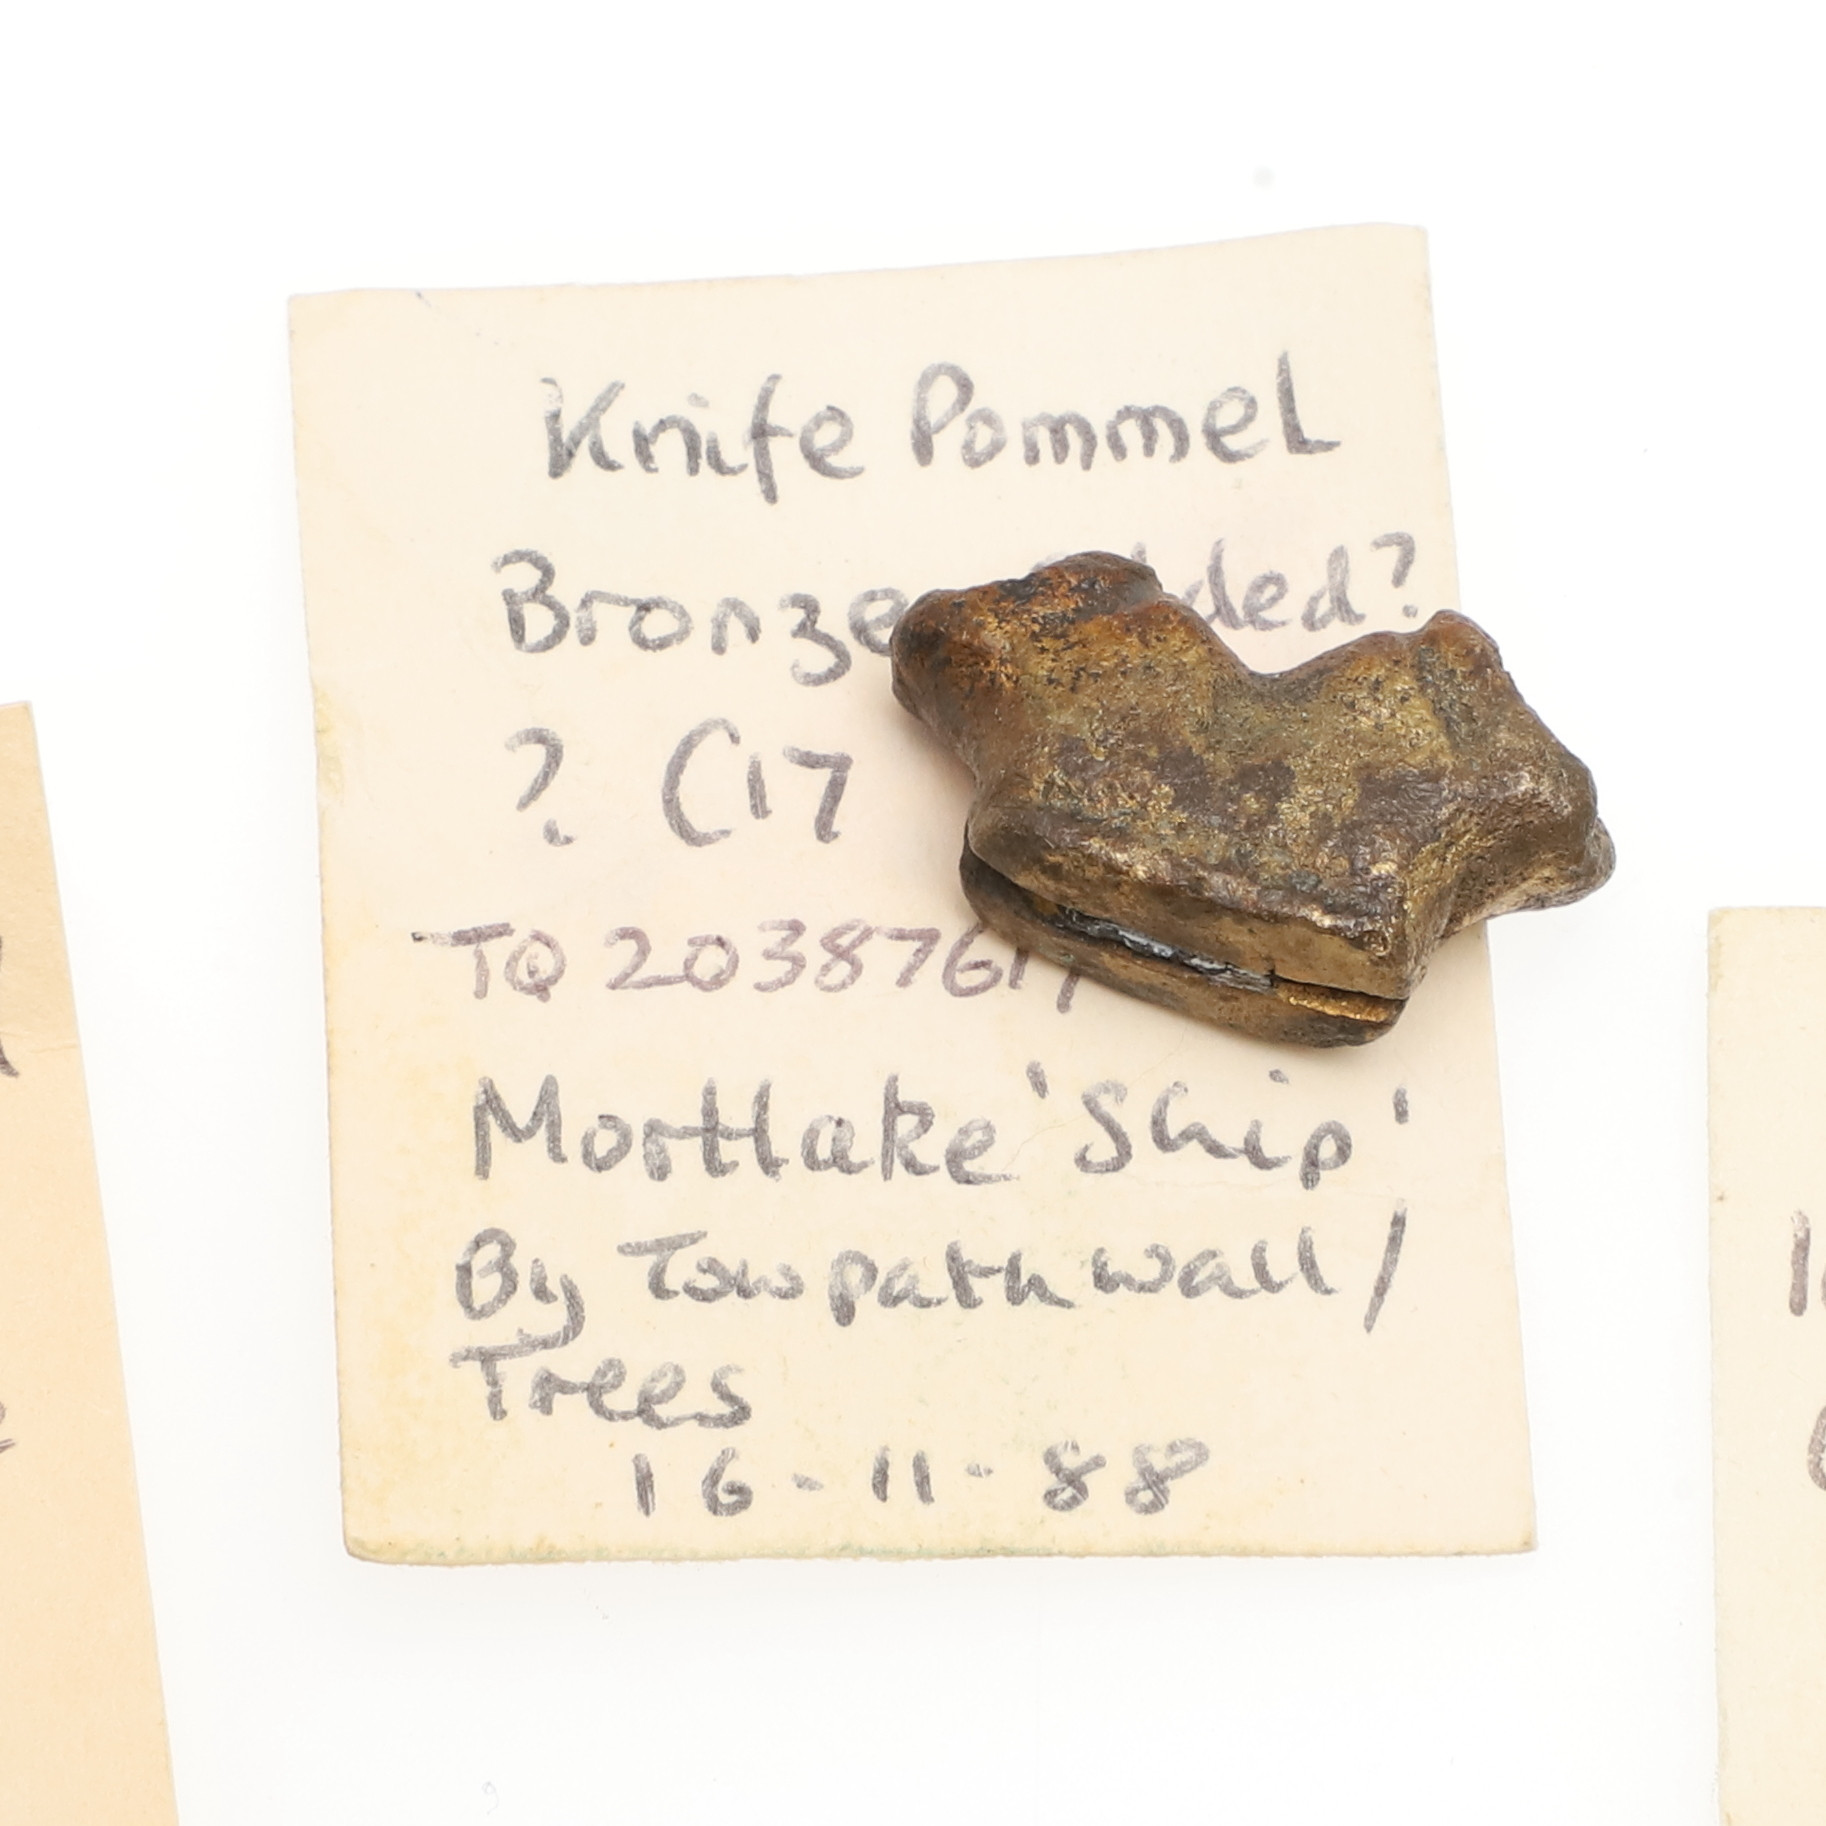 Knife Pommel
Bronze
? C17
TQ 2038761
Mortlake 'Ship'
By Towpath wall /
Trees
16-11-88